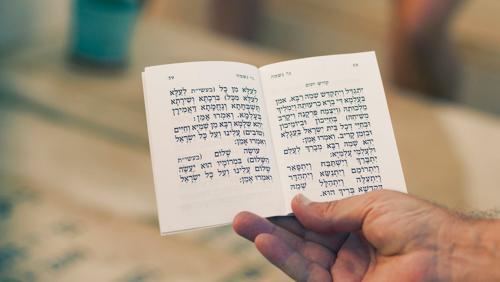 נר נשמה 58
קדיש יתום
יתגדל ויתקדש שמה רבא. אמן
בעלמא די ברא כרעותה וימליך
מלכותה ויצמח פרקנה ויקרב
משיחה) בחייכון וביומיכון
ובחיי דכל בית ישראל בעגלא
ובזמן קריב. ואמרו אמן:
יהא שמה רבא מברך לעלם
ולעלמי עלמיא:
יתברך וישתבח ויתפאר
ויתרומם ויתנשא ויתהדר
ויתעלה ויתהלל שמה
דקדשא בריך הוא.
נר נשמה 59
לעלא מן כל (בעשי״ת לעלא
לעלא מכל) ברכתא ושירתא
תשבחתא ונחמתא דאמירן
בעלמא. ואמרו אמן:
יהא שלמא רבא מן שמיא וחיים
(טובים) עלינו ועל כל ישראל
ואמרו אמן:
עושה שלום (בעשי״ת
השלום) במרומיו הוא יעשה
שלום עלינו ועל כל ישראל
ואמרו אמן: